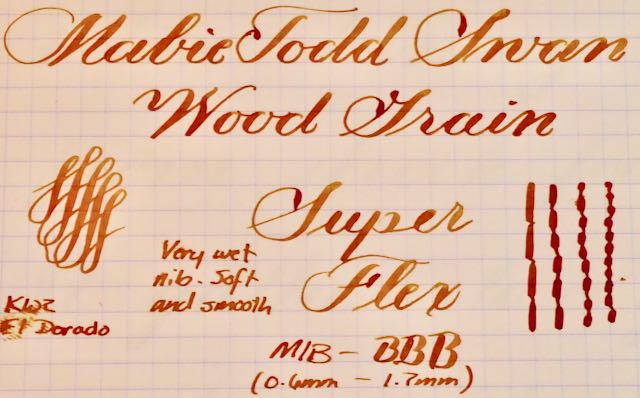 Mabie Todd Swan
Wood Grain
Super
Flex
Very wet
nib. Soft
and smooth
KWZ
El Dorado
M/B - BBB
(0.6mm - 1.7mm)